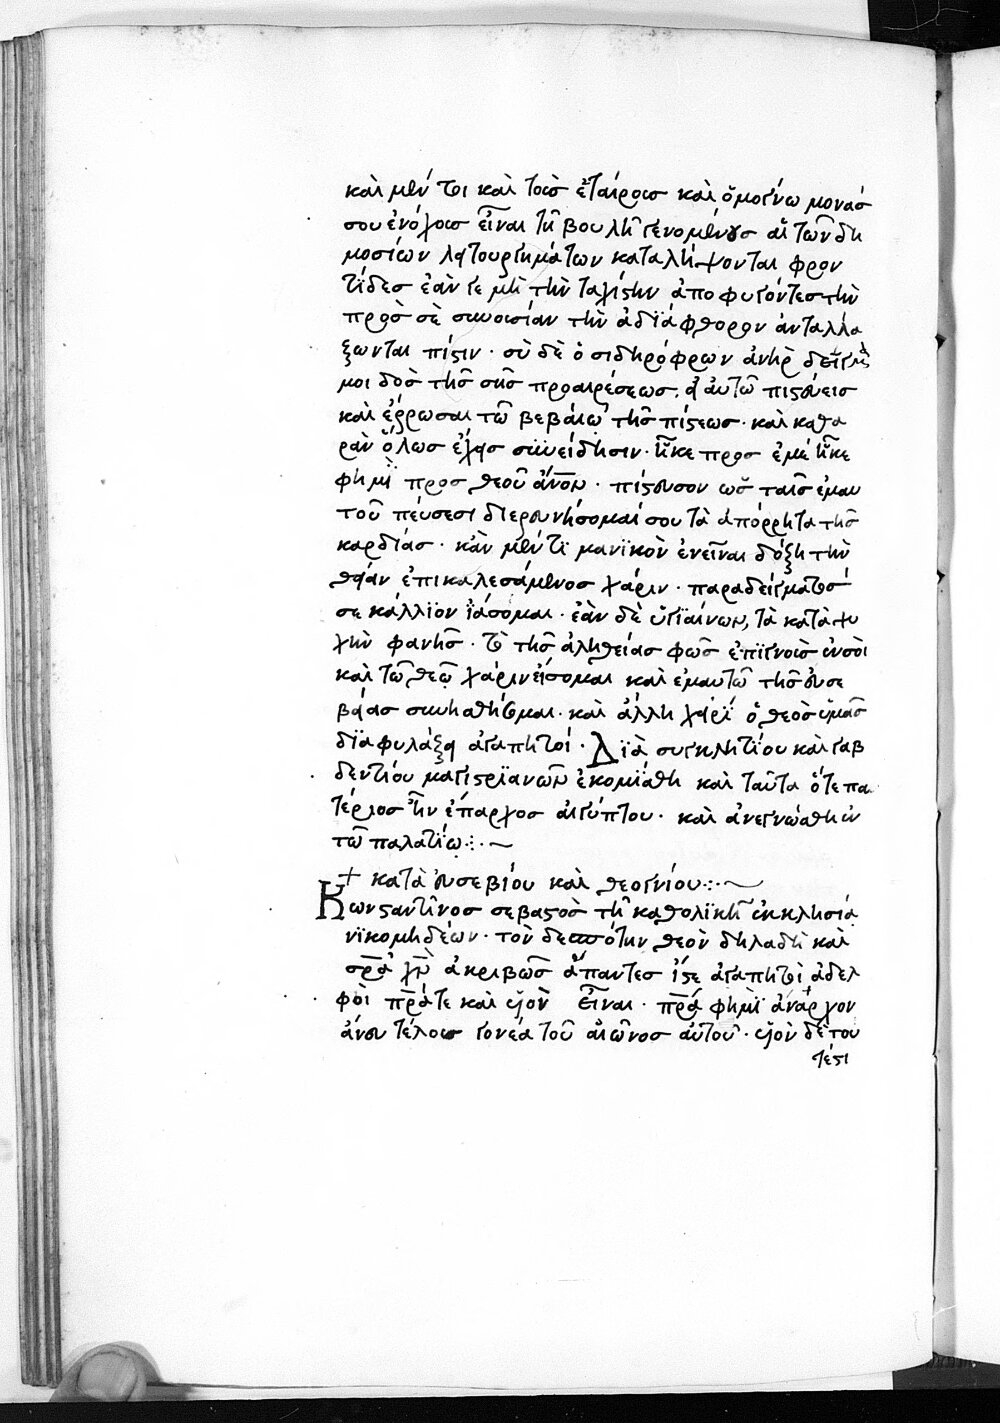 καὶ μέν τοι καὶ τοῖσ ἑταίροισ καὶ ὁμογνώμονάσ
σου ἐνόχοισ εἶναι τῆ βουλῆ γενομένουσ αἱ τῶν δη
μοσίων λητουργημάτων καταλήψονται φρον
τίδεσ ἐὰν γε μὴ τὴν ταχίστην ἀποφυγόντεσ τὴν
πρὸσ σὲ συνουσίαν τὴν ἀδϊάφθορον ἀνταλλά
ξωνται πίστιν · σὺ δὲ ὁ σιδηρόφρων ἀνὴρ δεῖγμά
μοι δὸσ τῆσ σῆσ προαιρέσεωσ, εἰ αὐτῶ πιστεύεισ
καὶ ἔρρωσαι τῶ βεβαίω τῆσ πίστεωσ · καὶ καθα
ρὰν ὅλωσ ἔχεισ συνείδησιν · ἧκε προσ ἐμέ ἧκε
φημῒ προσ θεοῦ ἄνον · πίστευσον ὡσ ταῖσ ἐμαυ
τοῦ πεύσεσι διερευνήσομαί σου τὰ ἀπόρρητα τῆσ
καρδίασ · κἂν μέν τϊ μανϊκὸν ἐνεῖναι δόξη τὴν
θείαν ἐπικαλεσάμενοσ χάριν · παραδείγματόσ
σε κάλλϊον ἰάσομαι · ἐὰν δὲ ὑγϊαίνων, τὰ κατὰ ψυ
χὴν φανῆσ · τὸ τῆσ ἀληθείασ φῶσ ἐπϊγνοὺσ ἐν σοὶ
καὶ τῶ θεῶ χάριν εἴσομαι καὶ ἐμαυτῶ τῆσ εὐσε
βείασ συνησθήσομαι · καὶ ἄλλη χειρῒ ὁ θεὸσ ὑμᾶσ
δϊαφυλάξει ἀγαπητοί · Δϊὰ συγκλητίου καὶ γαβ
δεντίου μαγιστρϊανῶν ἐκομίσθη καὶ ταῦτα ὅτε πα
τέριοσ ἦν ἔπαρχοσ αἰγύπτου · καὶ ἀνεγνώσθη ἐν
τῶ παλατίω ⁘ ~
+ κατὰ εὐσεβίου καὶ θεογνίου ⁘ ~
Κωνσταντῖνοσ σεβαστὸσ τῆ καθολϊκῆ ἐκκλησία
νϊκομηδέων · τὸν δεσπότην θεὸν δηλαδὴ καὶ
σρα χν ἀκριβῶσ ἅπαντεσ ἴστε ἀγαπητοὶ ἀδελ
φοὶ πρα τε καὶ υἱὸν εἶναι · πρα φημῒ ἄναρχον
ἄνευ τέλουσ γονέα τοῦ αἰῶνοσ αὐτοῦ · υἱὸν δὲ του
τέστι